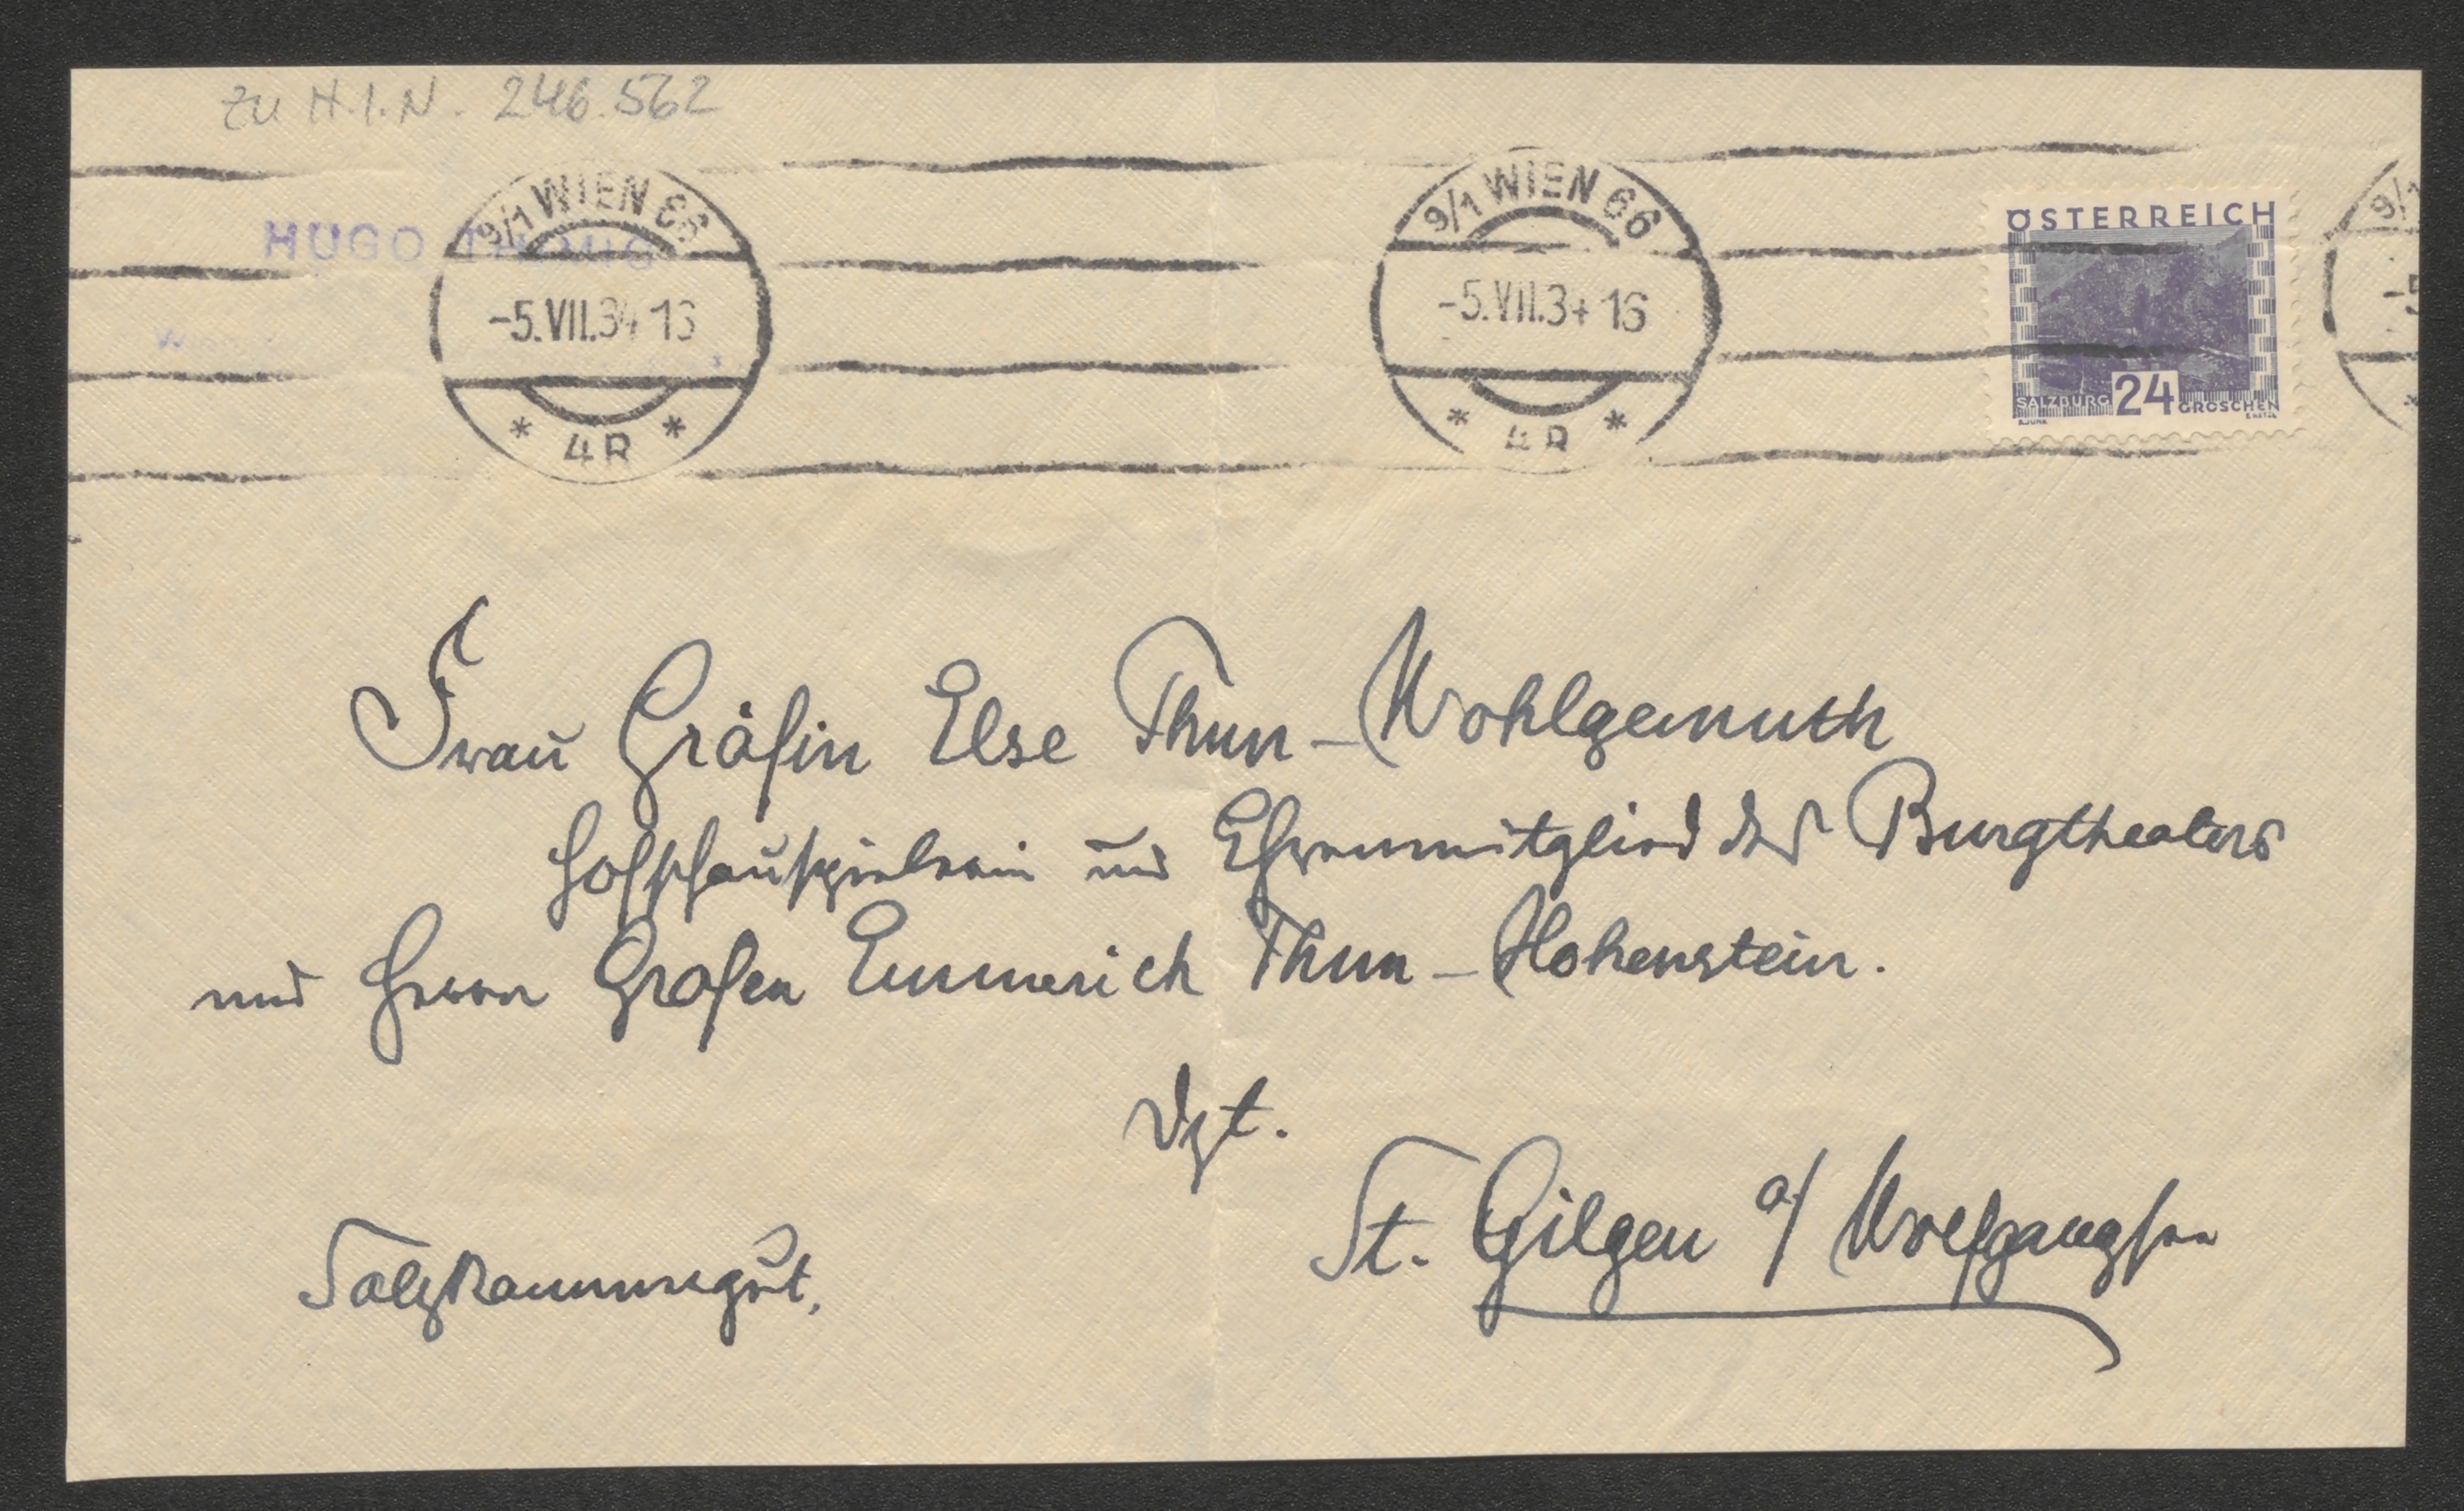 zu H.I.N. 246.562
HUGO THIMIG
9/1 WIEN 66
-5.VII.34 16
* 4R *
9/1 WIEN 66
-5.VII.34 16
* 4R *
ÖSTERREICH
SALZBURG 24 GROSCHEN
9/1
-5
Frau Gräfin Else Thun-Wohlgemuth
Hofschauspielerin und Ehrenmitglied des Burgtheaters
und Herrn Grafen Emmerich Thun-Hohenstein.
dzt.
St. Gilgen a/ Wolfgangsee
Salzkammergut.